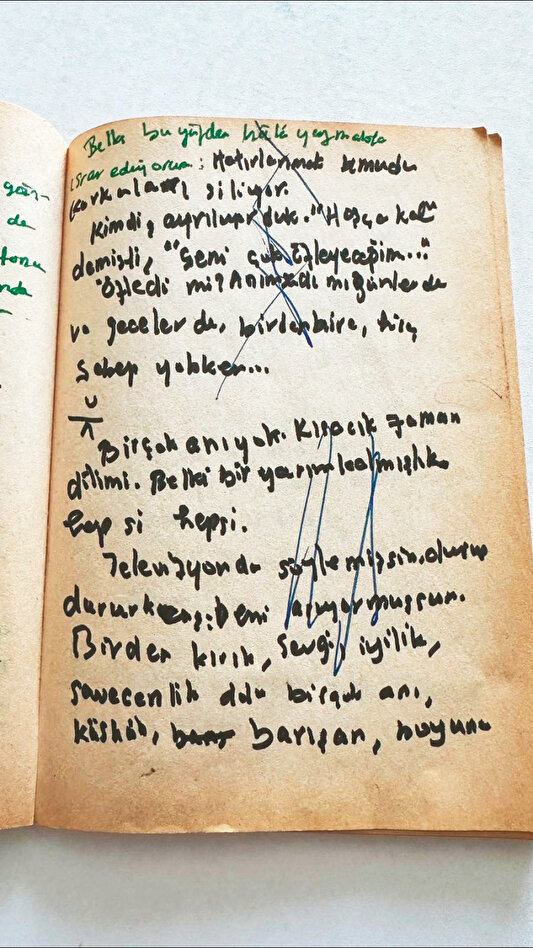 Belki bu yüzden hâlâ yazmakta
ısrar ediyorum: Hatırlanmak umudu
korkuları siliyor.
Kimdi, ayrılıyorduk. "Hoşça kal"
demişti, "Seni çok özleyeceğim..."
Özledi mi? Anımsadı mı günlerde
ve gecelerde, birdenbire, hiç
sebep yokken...
Birçok anı yok. Kısacık zaman
dilimi. Belki bir yarım kalmışlık
hepsi hepsi.
Televizyonda söylemişsin, durup
dururken: Beni arıyormuşsun.
Birden kırık, sevgi, iyilik,
sevecenlik dolu birçok anı,
küskün, barışan, boyuna
gör-
de